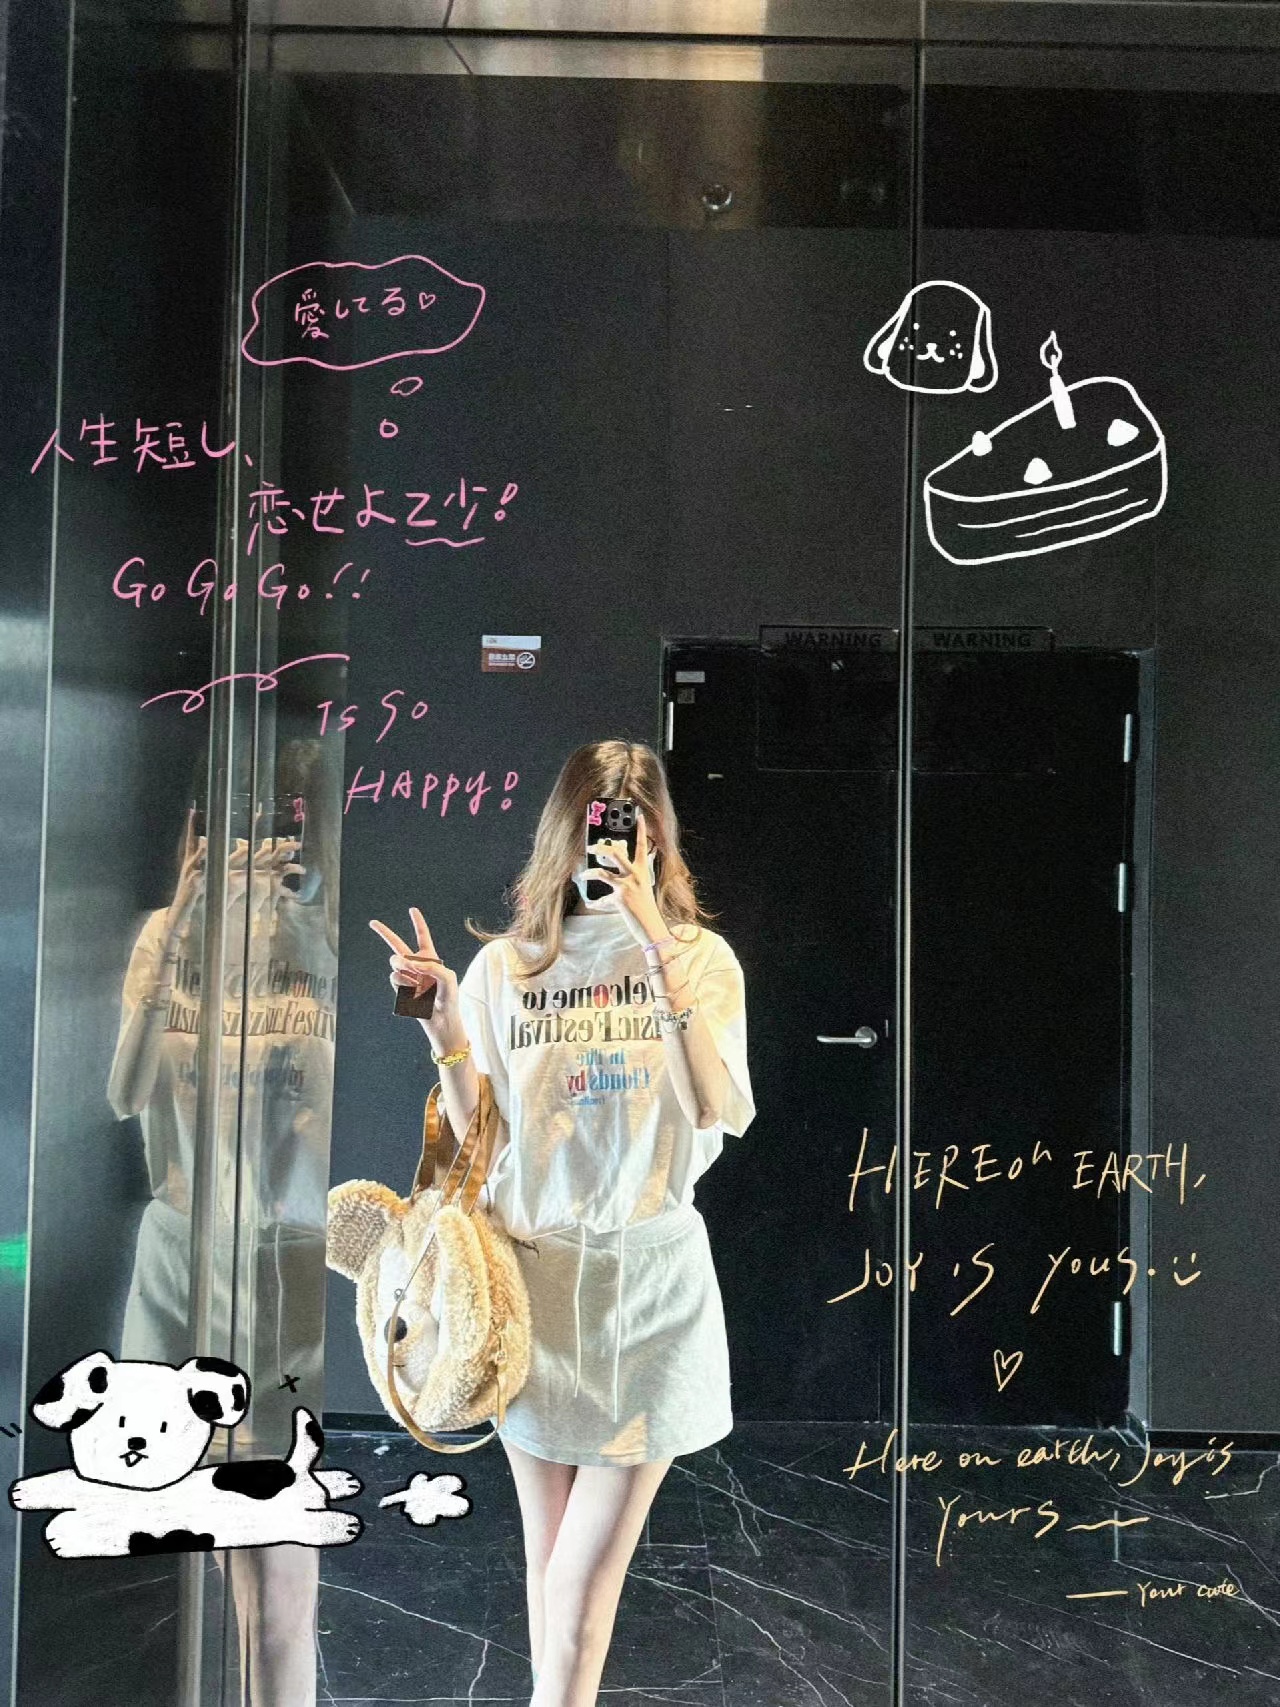 愛してる♡
人生短し、
恋せよ乙少!
Go Go Go!!
Is so
HAppy!
WARNING WARNING
Welcome to
Music Festival
In The
Clouds by
HERE on EARTH,
JOY iS YouS. :)
♡
Here on earth, Joy is
Yours
— Your cute